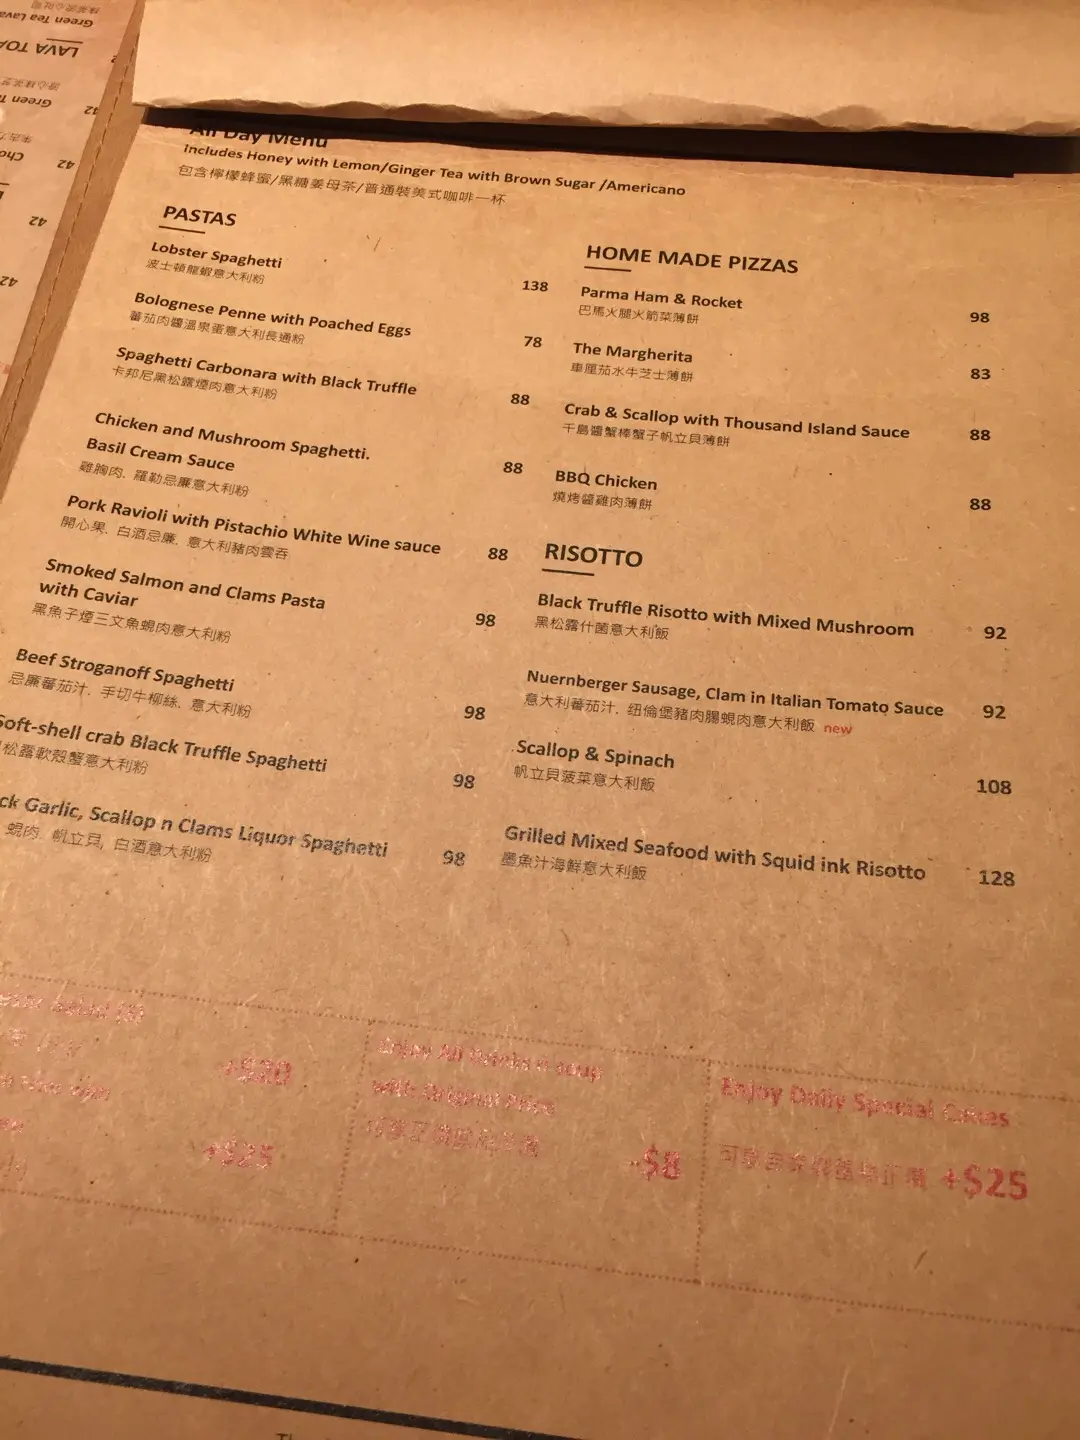 All Day Menu
Includes Honey with Lemon/Ginger Tea with Brown Sugar /Americano
包含檸檬蜂蜜/黑糖姜母茶/普通裝美式咖啡一杯
PASTAS
Lobster Spaghetti
波士頓龍蝦意大利粉
138
Bolognese Penne with Poached Eggs
蕃茄肉醬溫泉蛋意大利長通粉
78
Spaghetti Carbonara with Black Truffle
卡邦尼黑松露煙肉意大利粉
88
Chicken and Mushroom Spaghetti.
Basil Cream Sauce
雞胸肉. 羅勒忌廉意大利粉
88
Pork Ravioli with Pistachio White Wine sauce
開心果. 白酒忌廉. 意大利豬肉雲吞
88
Smoked Salmon and Clams Pasta
with Caviar
黑魚子煙三文魚蜆肉意大利粉
98
Beef Stroganoff Spaghetti
忌廉蕃茄汁. 手切牛柳絲. 意大利粉
98
Soft-shell crab Black Truffle Spaghetti
松露軟殼蟹意大利粉
98
ck Garlic, Scallop n Clams Liquor Spaghetti
蜆肉. 帆立貝, 白酒意大利粉
98
HOME MADE PIZZAS
Parma Ham & Rocket
巴馬火腿火箭菜薄餅
98
The Margherita
車厘茄水牛芝士薄餅
83
Crab & Scallop with Thousand Island Sauce
千島醬蟹棒蟹子帆立貝薄餅
88
BBQ Chicken
燒烤醬雞肉薄餅
88
RISOTTO
Black Truffle Risotto with Mixed Mushroom
黑松露什菌意大利飯
92
Nuernberger Sausage, Clam in Italian Tomato Sauce
意大利蕃茄汁. 纽倫堡豬肉腸蜆肉意大利飯 new
92
Scallop & Spinach
帆立貝菠菜意大利飯
108
Grilled Mixed Seafood with Squid ink Risotto
墨魚汁海鮮意大利飯
128
+$20
+$25
Enjoy All Drinks n soup
with Original Price
-$8
Enjoy Daily Special Cakes
+$25
Green Tea Lava
LAVA TOA
Green T
42
Cho
42
42
42